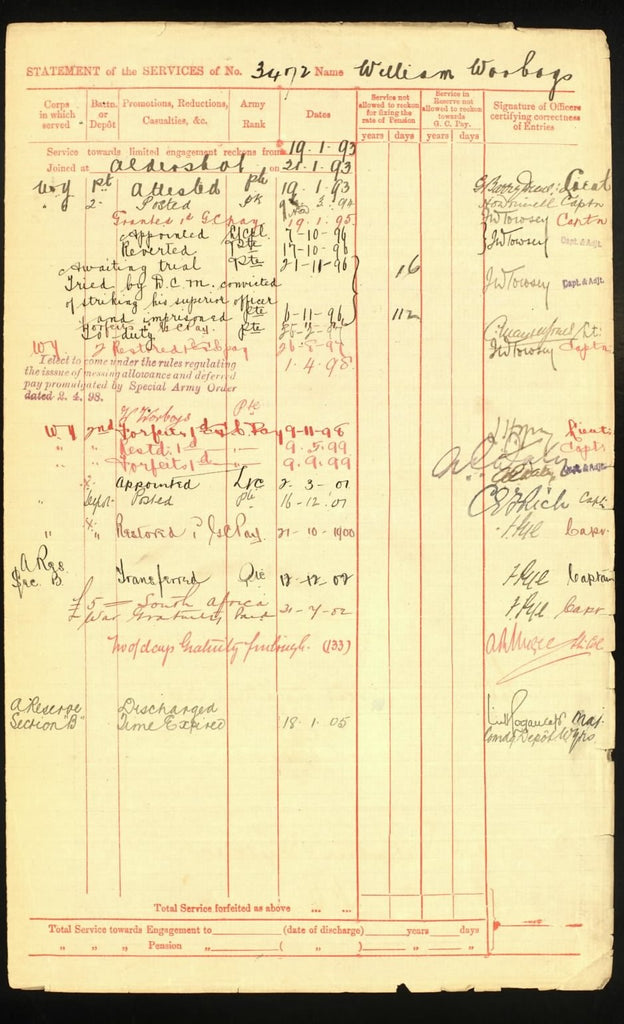 STATEMENT of the SERVICES of No. 3472 Name William Worboys
Corps in which served Battn. or Depôt Promotions, Reductions, Casualties, &c. Army Rank Dates Service not allowed to reckon for fixing the rate of Pension Service in Reserve not allowed to reckon towards G. C. Pay. Signature of Officers certifying correctness of Entries
years days years days
Service towards limited engagement reckons from 19.1.93
Joined at Aldershot on 21.1.93
W Y Attested Pte 19.1.93 Lieut
" 2 Posted Pte Captn
Granted 1st G C pay 19.1.95 JW Towsey Captn
Appointed L/Cpl 7-10-96 JW Towsey Capt. & Adjt.
Reverted Pte 17-10-96
Awaiting trial Pte 21-11-96 16
Tried by D.C.M. convicted JW Towsey Capt. & Adjt.
of striking his superior officer
and imprisoned Pte 6-11-96 112
Forfeits G C Pay
To duty Pte Lt
W Y 2 Restored G C pay JW Towsey Captn
I elect to come under the rules regulating
the isssue of messing allowance and deferred 1.4.98.
pay promulgated by Special Army Order
dated 2. 4. 98.
W Worboys Pte
W Y 2nd Forfeits 1st G C Pay 9-11-98 Lieut
" " Restd 1st " 9.5.99 Captn
" " Forfeits 1st " 9.9.99 Capt. & Adjt.
" Appointed L/C 2.3.01
" Depot Posted Pte 16-12-01 Rich Capt
" " Restored G C Pay 21-10-1900 Hyl Capt
A Res
Sec. B Transferred Pte 12-12-02 Hyl Captain
£5 = South Africa
War Gratuity Paid 31-7-02 Hyl Capt
Gratuity furlough. (133)
A Reserve Discharged
Section "B" Time Expired 18.1.05 Maj
Comdg Depôt
Total Service forfeited as above ... ...
Total Service towards Engagement to (date of discharge) years days
" " Pension " ( " ) " "